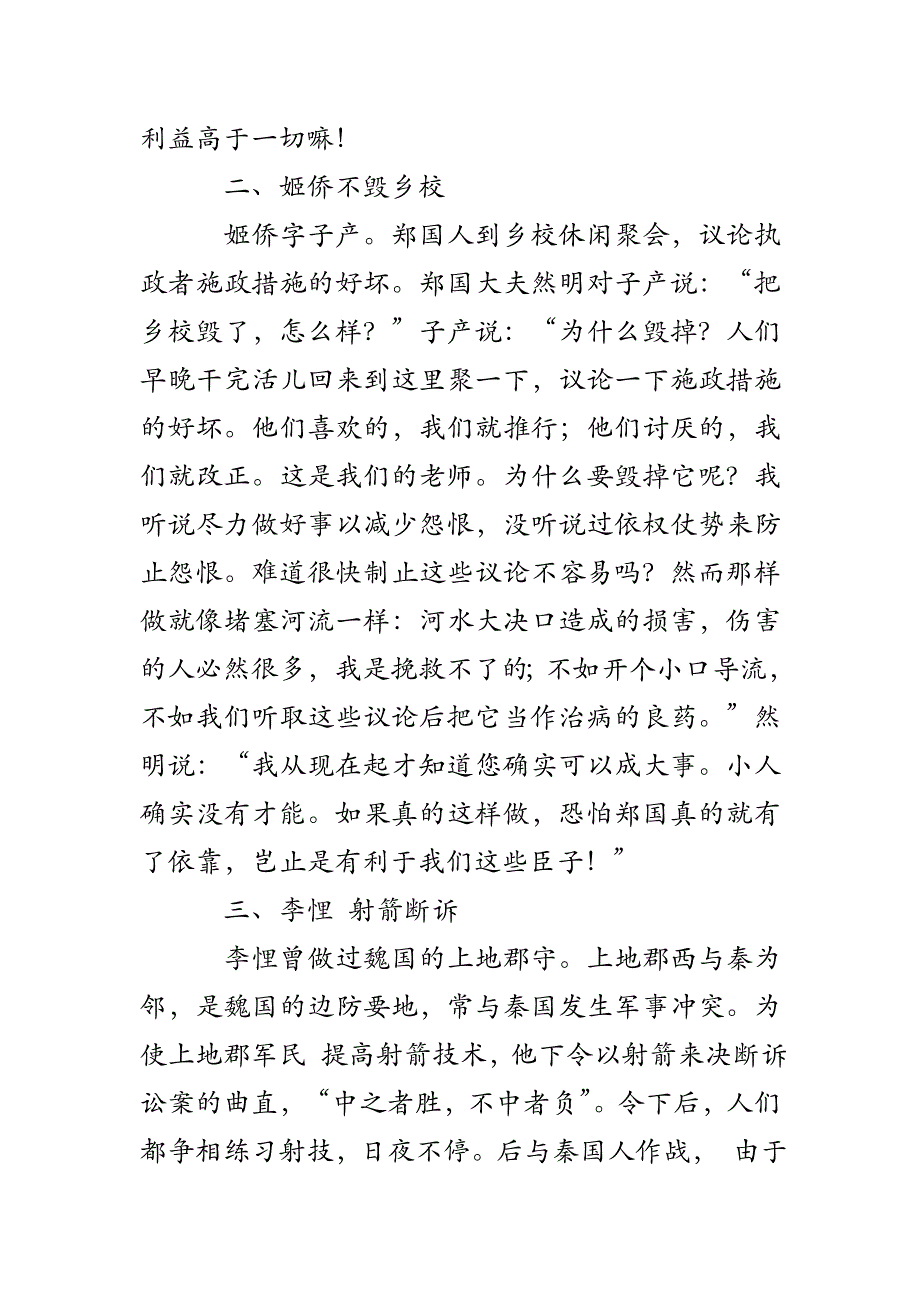 利益高于一切嘛！
二、姬侨不毁乡校
姬侨字子产。郑国人到乡校休闲聚会，议论执
政者施政措施的好坏。郑国大夫然明对子产说：“把
乡校毁了，怎么样？”子产说：“为什么毁掉？人们
早晚干完活儿回来到这里聚一下，议论一下施政措施
的好坏。他们喜欢的，我们就推行；他们讨厌的，我
们就改正。这是我们的老师。为什么要毁掉它呢？我
听说尽力做好事以减少怨恨，没听说过依权仗势来防
止怨恨。难道很快制止这些议论不容易吗？然而那样
做就像堵塞河流一样：河水大决口造成的损害，伤害
的人必然很多，我是挽救不了的；不如开个小口导流，
不如我们听取这些议论后把它当作治病的良药。”然
明说：“我从现在起才知道您确实可以成大事。小人
确实没有才能。如果真的这样做，恐怕郑国真的就有
了依靠，岂止是有利于我们这些臣子！”
三、李悝 射箭断诉
李悝曾做过魏国的上地郡守。上地郡西与秦为
邻，是魏国的边防要地，常与秦国发生军事冲突。为
使上地郡军民 提高射箭技术，他下令以射箭来决断诉
讼案的曲直，“中之者胜，不中者负”。令下后，人们
都争相练习射技，日夜不停。后与秦国人作战， 由于